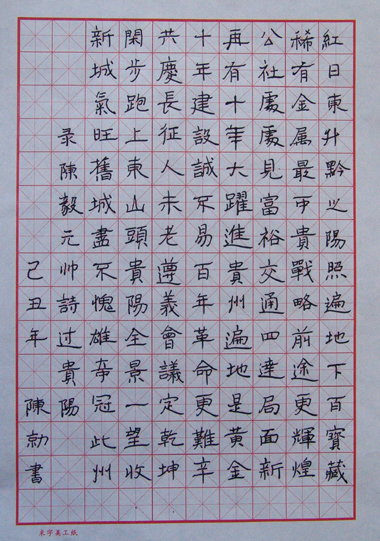 紅日東升黔之陽照遍地下百寶藏
稀有金属最可貴戰略前途更輝煌
公社處處見富裕交通四達局面新
再有十年大躍進貴州遍地是黃金
十年建設誠不易百年革命更難辛
共慶長征人未老遵義會議定乾坤
閑步跑上東山頭貴陽全景一望收
新城氣旺舊城盡不愧雄奇冠此州
录陳毅元帅詩过貴陽
己丑年 陳書
米字美工纸